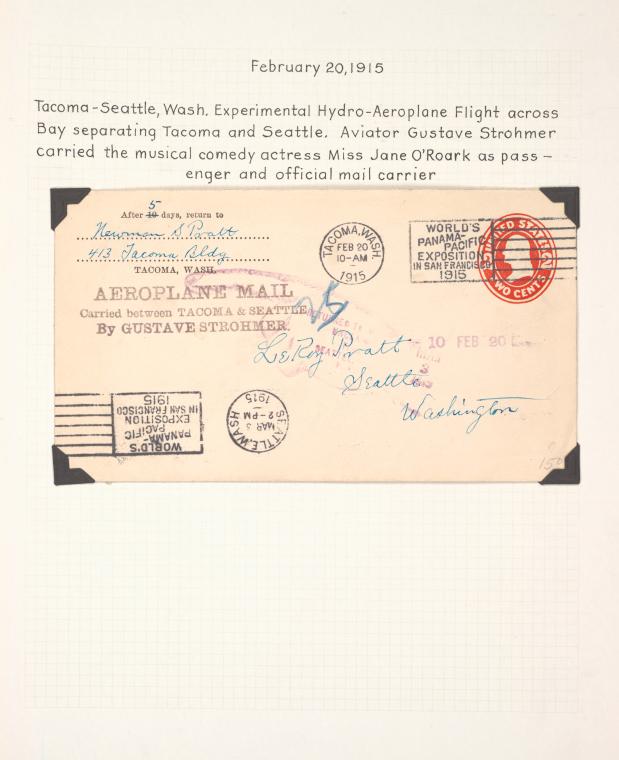 February 20, 1915
Tacoma-Seattle, Wash. Experimental Hydro-Aeroplane Flight across
Bay separating Tacoma and Seattle. Aviator Gustave Strohmer
carried the musical comedy actress Miss Jane O'Roark as pass-
enger and official mail carrier
5
After 10 days, return to
Newman S Pratt
413 Tacoma Bldg
TACOMA, WASH.
AEROPLANE MAIL
Carried between TACOMA & SEATTLE
By GUSTAVE STROHMER.
TACOMA, WASH.
FEB 20
10-AM
1915
WORLD'S
PANAMA-
PACIFIC
EXPOSITION
IN SAN FRANCISCO
1915
UNITED STATES
TWO CENTS
10 FEB 20
LeRoy Pratt
Seattle
Washington
WORLD'S
PANAMA-
PACIFIC
EXPOSITION
IN SAN FRANCISCO
1915
SEATTLE, WASH
MAR 3
2-PM
1915